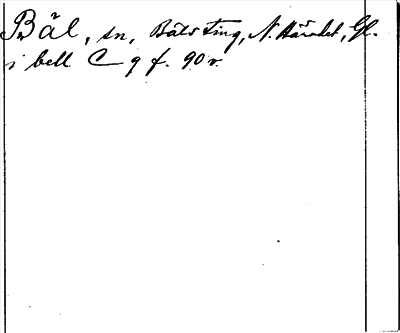 Bäl, sn, Bäls ting, N. Häradet, Gl.
i bell C 9 f. 90 v.